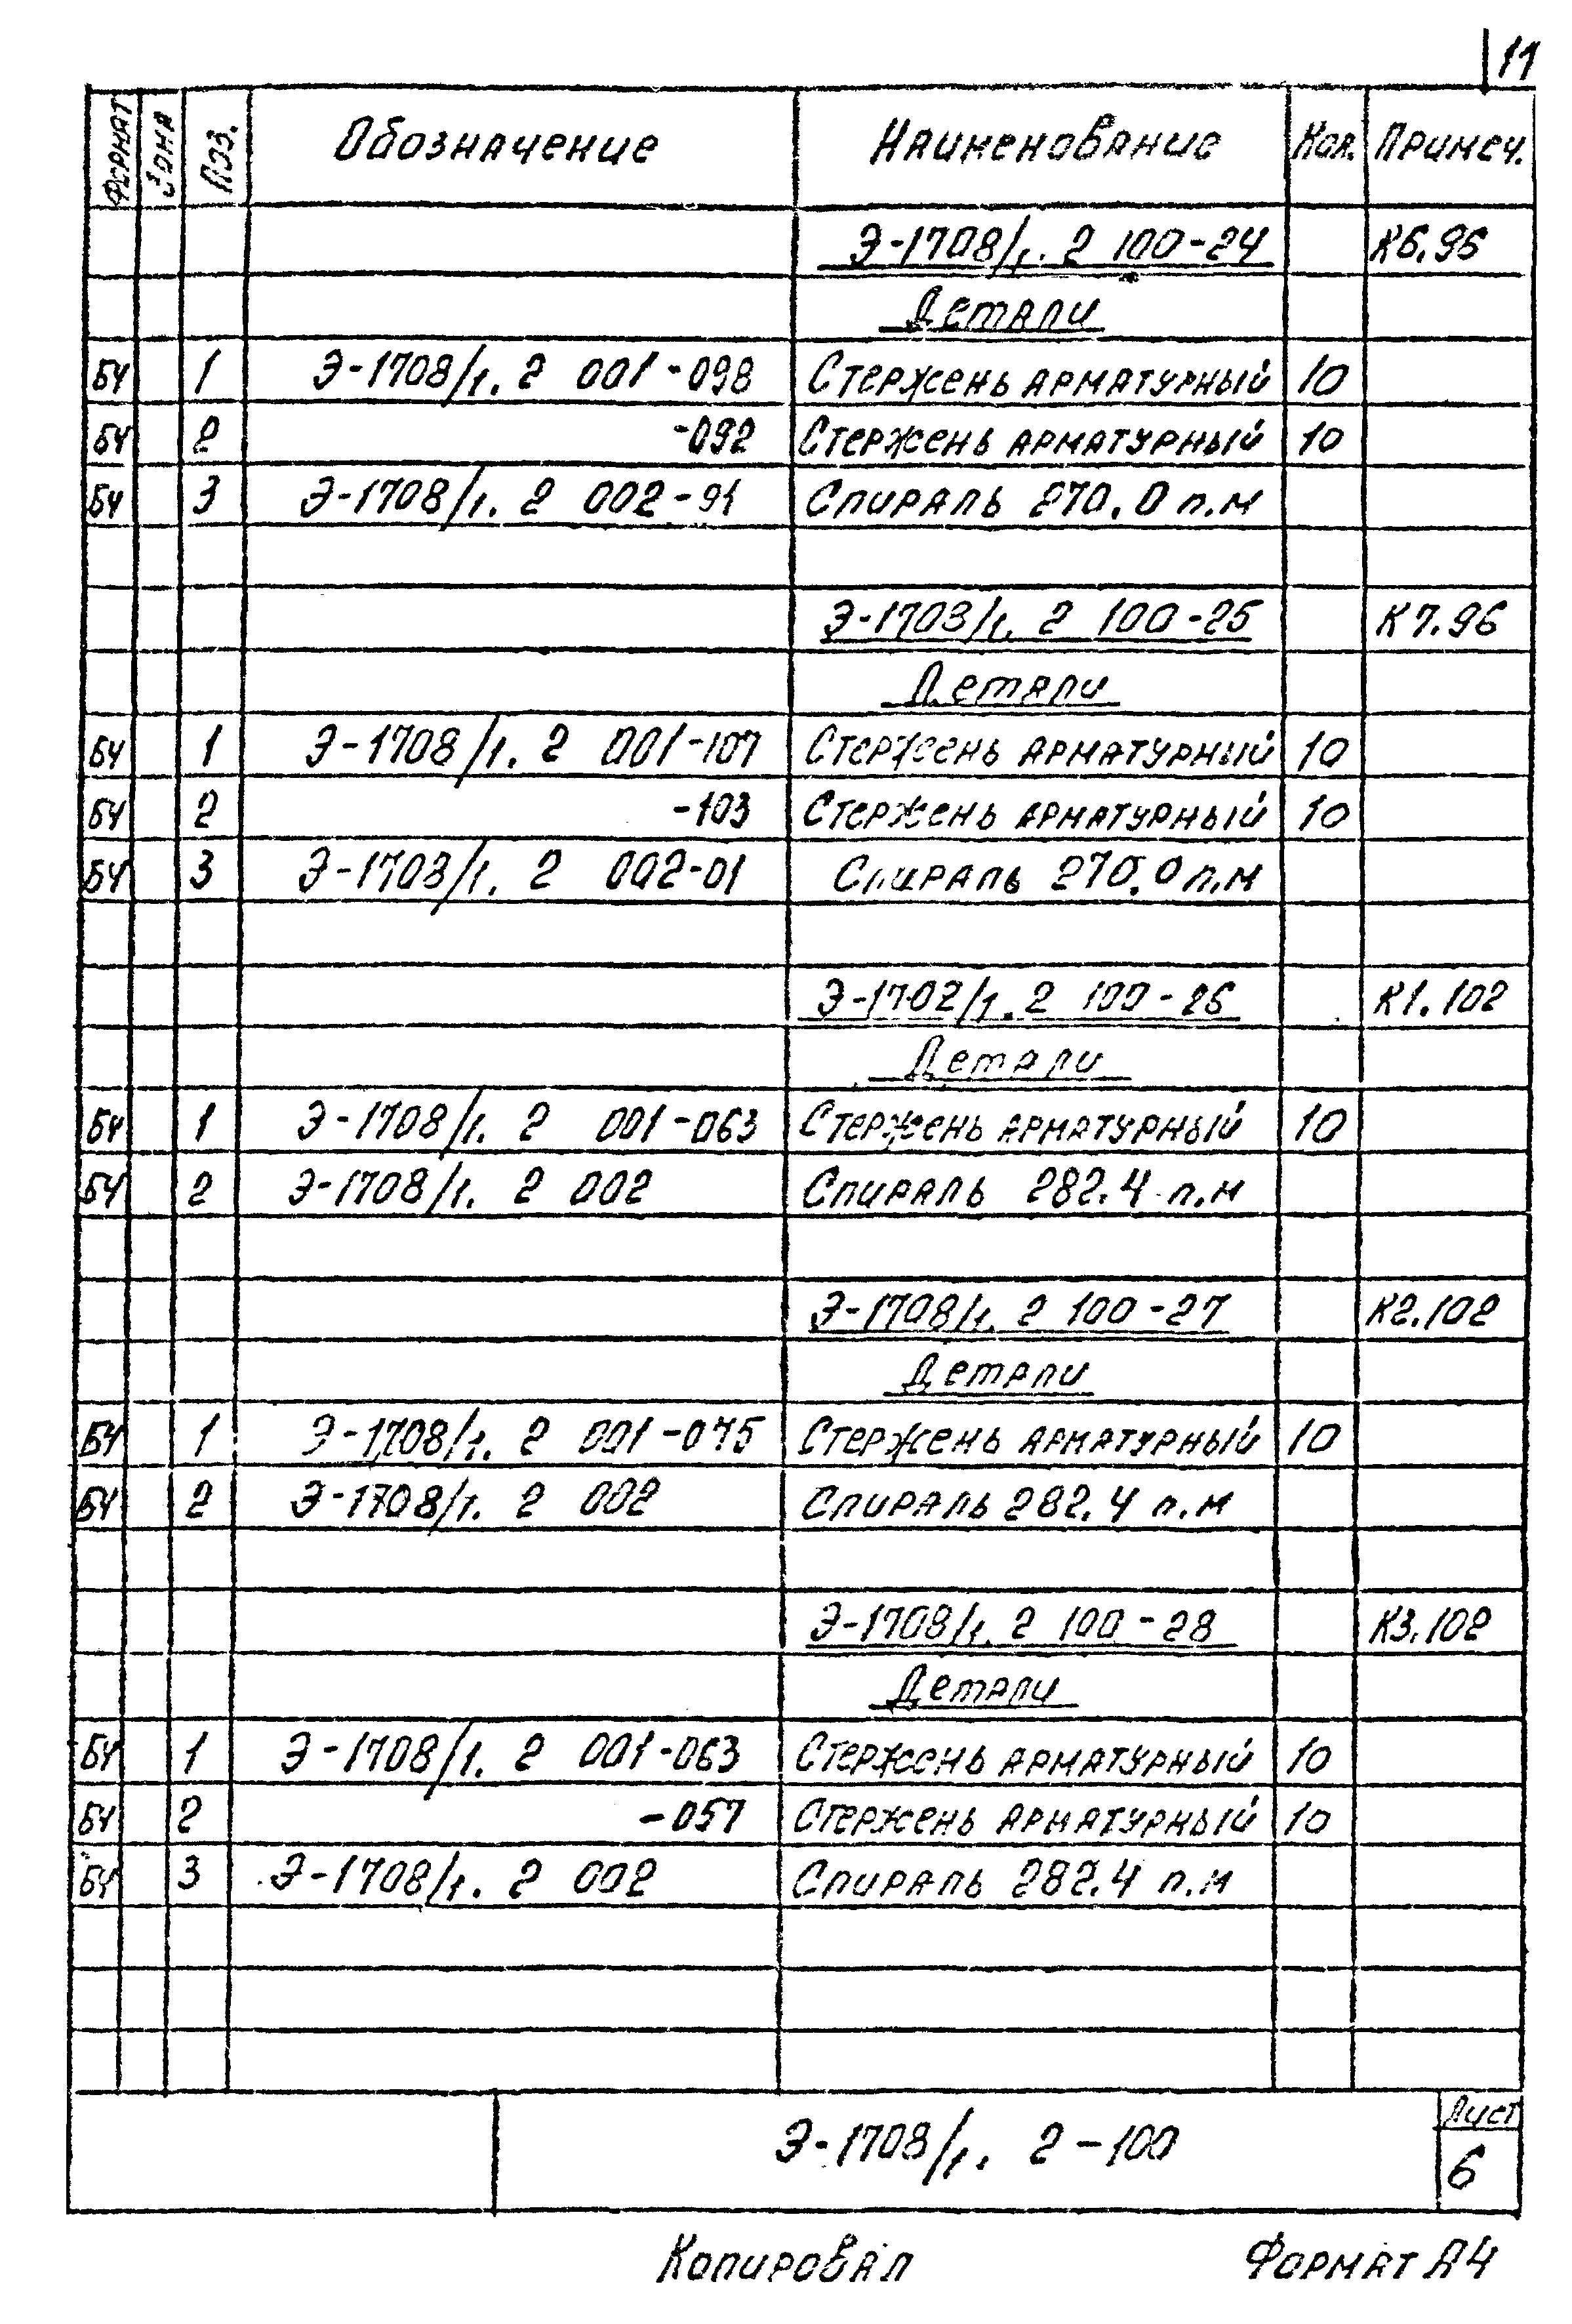 11
Формат Зона Поз. Обозначение Наименование Кол. Примеч.
Э-1708/1. 2 100-24 К6.96
Детали
БЧ 1 Э-1708/1. 2 001-098 Стержень арматурный 10
БЧ 2 -092 Стержень арматурный 10
БЧ 3 Э-1708/1. 2 002-01 Спираль 270.0 п.м
Э-1708/1. 2 100-25 К7.96
Детали
БЧ 1 Э-1708/1. 2 001-107 Стержень арматурный 10
БЧ 2 -103 Стержень арматурный 10
БЧ 3 Э-1708/1. 2 002-01 Спираль 270.0 п.м
Э-1708/1. 2 100-26 К1.102
Детали
БЧ 1 Э-1708/1. 2 001-063 Стержень арматурный 10
БЧ 2 Э-1708/1. 2 002 Спираль 282.4 п.м
Э-1708/1. 2 100-27 К2.102
Детали
БЧ 1 Э-1708/1. 2 001-075 Стержень арматурный 10
БЧ 2 Э-1708/1. 2 002 Спираль 282.4 п.м
Э-1708/1. 2 100-28 К3.102
Детали
БЧ 1 Э-1708/1. 2 001-063 Стержень арматурный 10
БЧ 2 -057 Стержень арматурный 10
БЧ 3 Э-1708/1. 2 002 Спираль 282.4 п.м
Э-1708/1. 2-100
Лист
6
Копировал Формат А4